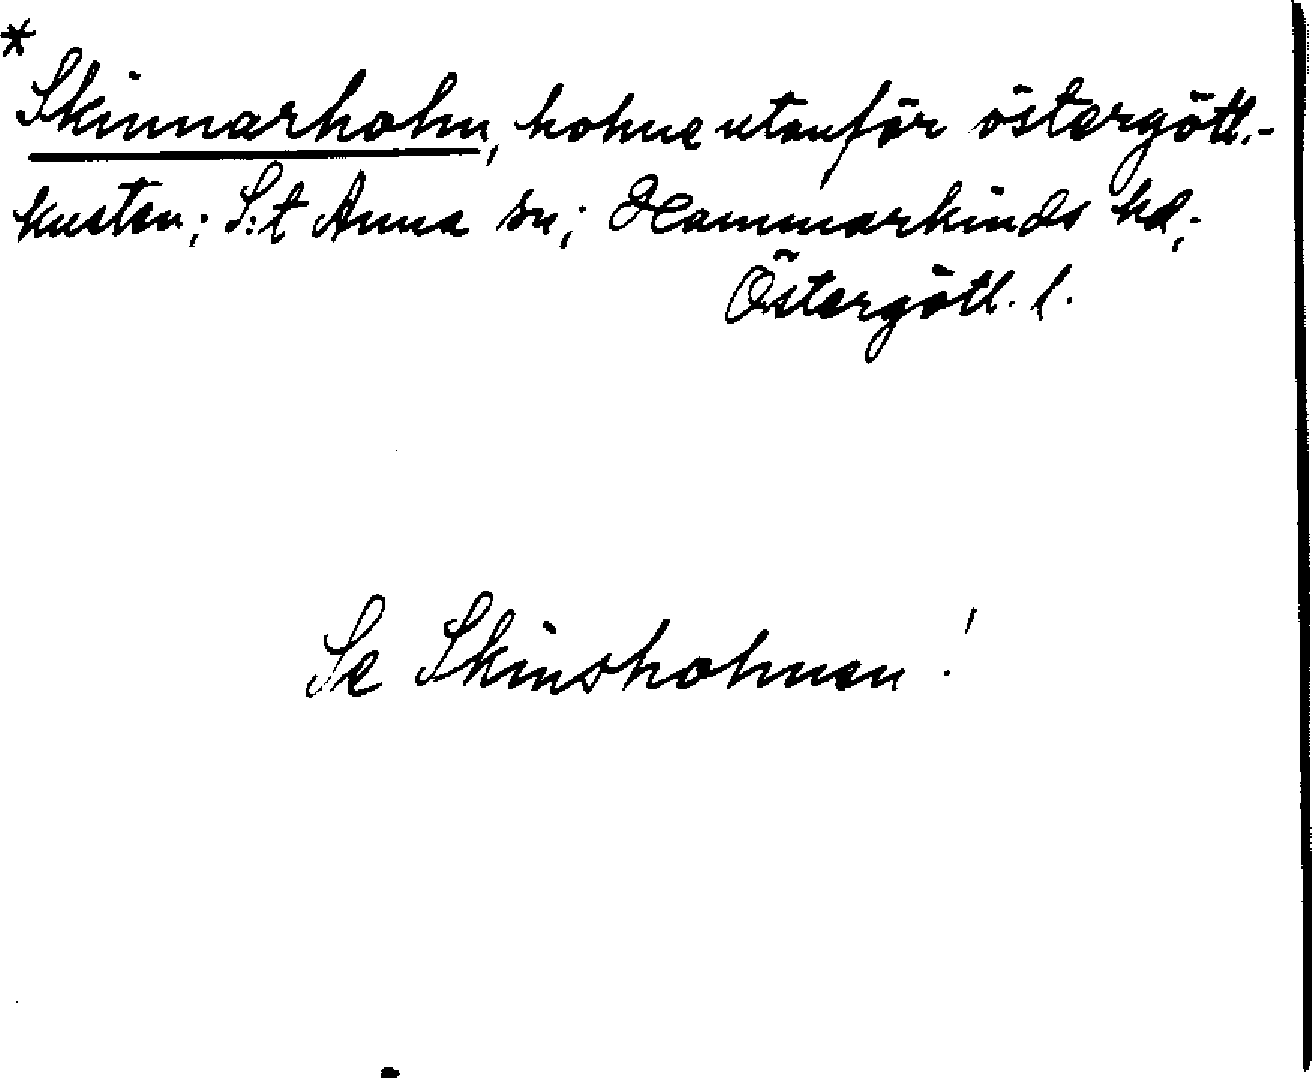 *
Skinnarholm, holme utanför östergötl.-
kusten; S:t Anna sn; Hammarkinds hd;
Östergötl. l.
Se Skinsholmen!